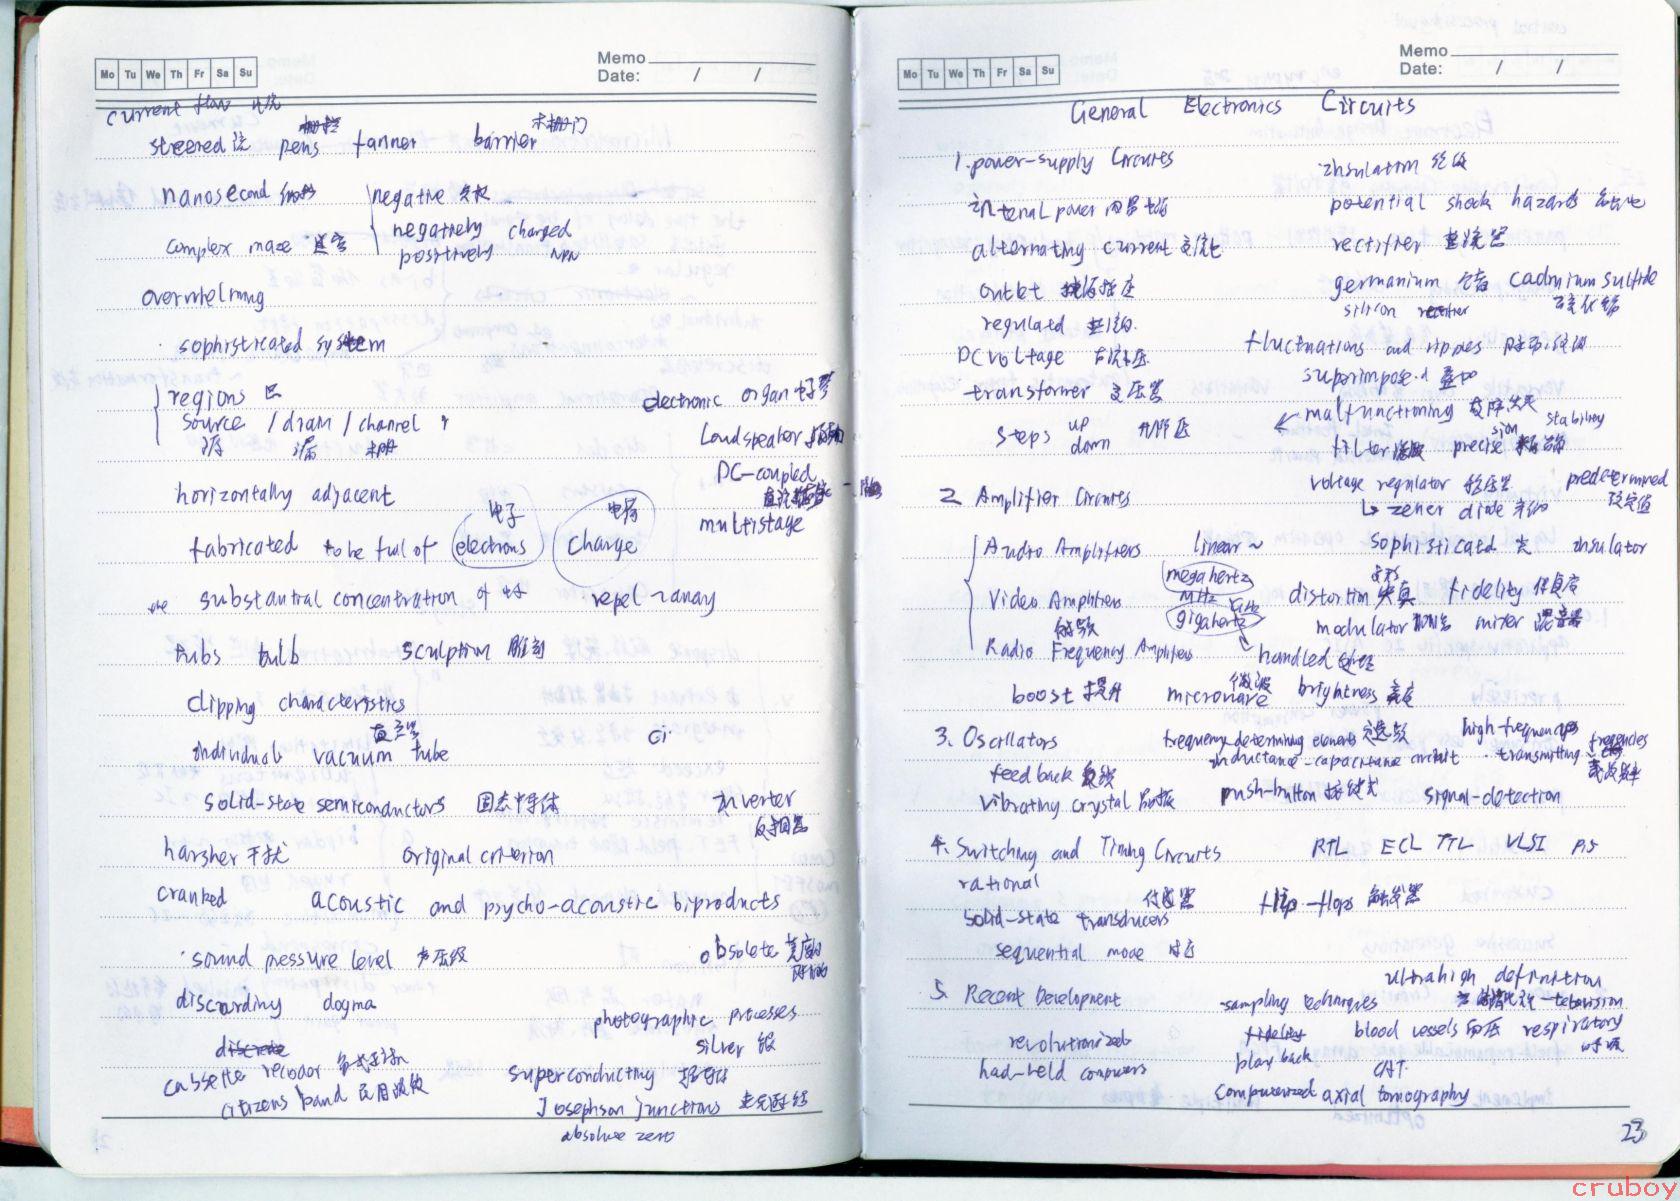 Mo Tu We Th Fr Sa Su
Memo
Date: / /
current flow
steered pens tanner barrier
nanosecond negative
negatively charged
complex maze positively NPN
overwhelming
sophisticated system
regions 区
source / drain / channel
源 漏
horizontally adjacent
electronic organ 电子琴
loudspeaker
DC-coupled
multistage
电子 电荷
fabricated to be full of electrons charge
the substantral concentration of 电子 repel ~ away
tubs bulb sculption 雕刻
clipping characteristics
individual vacuum tube
真空管
solid-state semiconductors 固态半导体 inverter
反相器
harsher 干扰 original criterion
cranked acoustic and psycho-acoustic biproducts
sound pressure level 声压级 obsolete
discarding dogma
photographic processes
silver 银
discrete
cassette recodor
citizens band 民用波段
superconducting 超导体
Josephson junctions
absolute zero
Mo Tu We Th Fr Sa Su
Memo
Date: / /
General Electronics Circuits
1. power-supply Circuits insulation 绝缘
internal power 内部电源 potential shock hazards
alternating current 交流电 rectifier 整流器
outlet germanium 锗 cadmium sulfide
硫化镉
regulated silicon rectifier
DC voltage 直流电压 fluctuations and ripples
transformer 变压器 superimposed 叠加
steps up
down
malfunctioning stability
filter 滤波 precision 精确
voltage regulator 稳压器 predetermined
设定值
zener diode
2. Amplifier Circuits
Audio Amplifiers linear ~ sophisticatd insulator
Video Amplifiers megahertz
MHz
distortion 失真 fidelity 保真度
视频 gigahertz GHz modulator mixer 混音器
Radio Frequency Amplifiers handled 处理
boost 提升 microwave 微波 brightness 亮度
3. Oscillators frequency-determining elements 选频 high-frequency
inductance-capacitance circuit transmitting frequencies
feedback 反馈
vibrating crystal 晶振 push-button 按键式 signal-detection
4. Switching and Timing Circuits RTL ECL TTL VLSI
rational
传感器
solid-state transducers flip-flops 触发器
sequential mode
ultrahigh definition
5. Recent Development sampling techniques television
revolutionized fidelity blood vessels 血压 respiratory
呼吸
play back CAT.
had-held computers
computerized axial tomography
23
cruboy